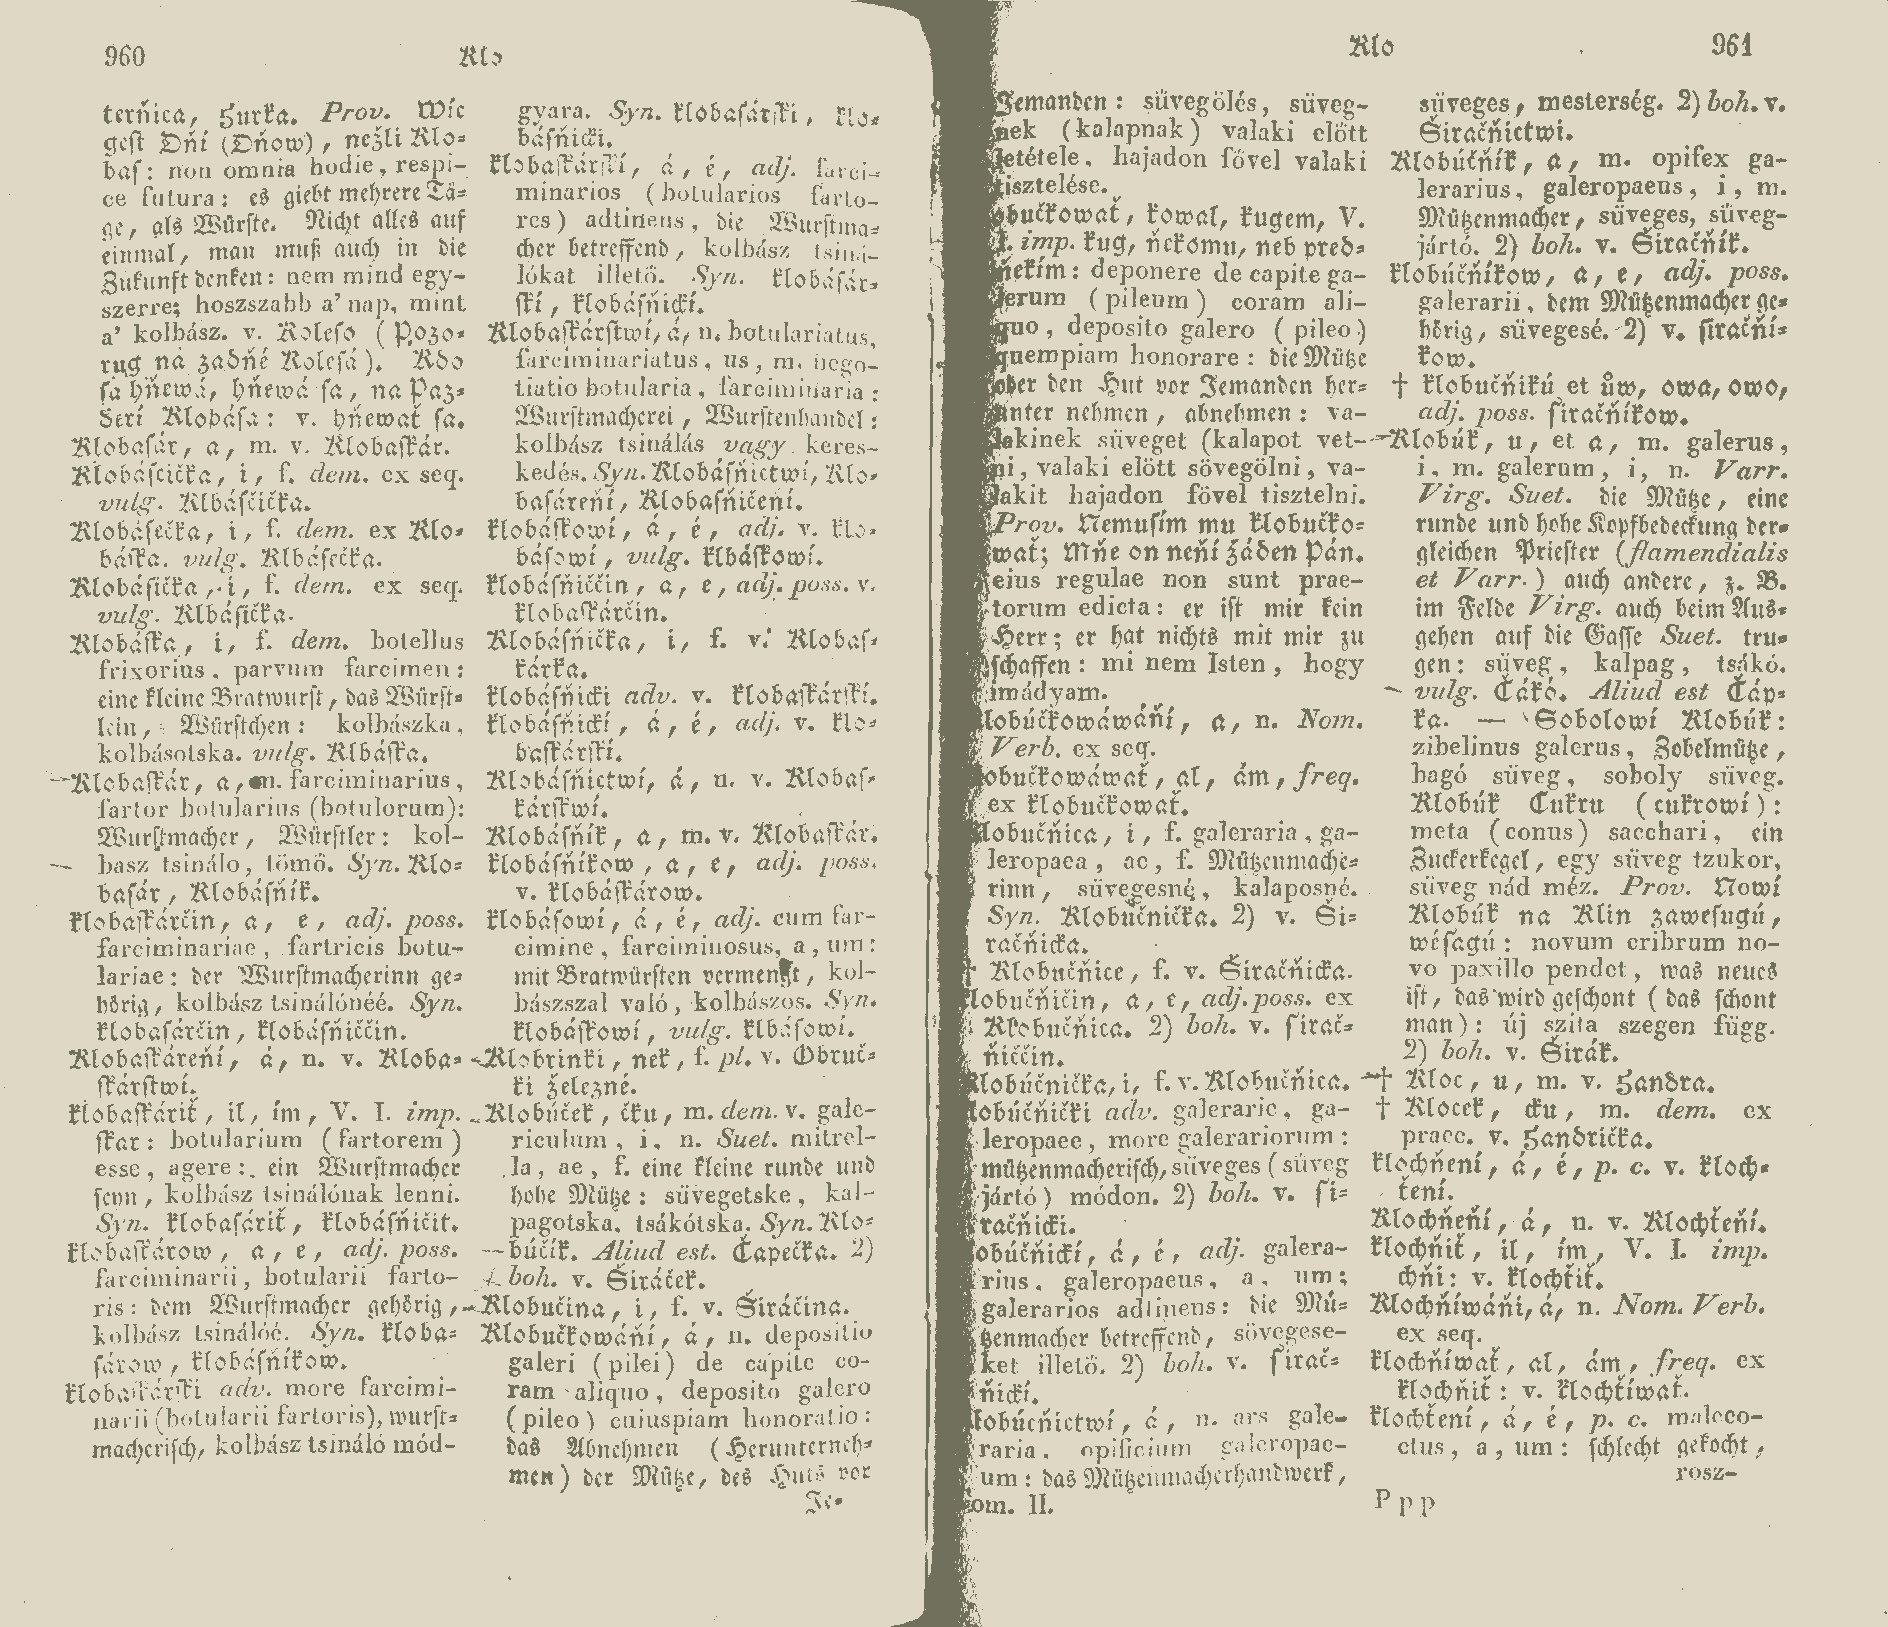 960
Klo
terňica, Hurka. Prov. Wíc
gest Dňí (Dňow), nežli Klo=
bas: non omnia hodie, respi-
ce futura: es giebt mehrere Tä=
ge, als Würste. Nicht alles auf
einmal, man muß auch in die
Zukunft denken: nem mind egy-
szerre; hoszszabb a' nap, mint
a' kolbász. v. Koleso (Pozo-
rug na zadňé Kolesá). Kdo
sa hňewá, hňewá sa, na Paz=
derí Klobása: v. hňewať sa.
Klobasár, a, m. v. Klobaskár.
Klobáscička, i, f. dem. ex seq.
vulg. Klbáščička.
Klobásečka, i, f. dem. ex Klo=
báska. vulg. Klbásečka.
Klobásička, i, f. dem. ex seq.
vulg. Klbásička.
Klobáska, i, f. dem. botellus
frixorius, parvum farcimen:
eine kleine Bratwurst, das Würst=
lein, Würstchen: kolbászka,
kolbásotska. vulg. Klbáska.
Klobaskár, a, m. farciminarius,
fartor botularius (botulorum):
Wurstmacher, Würstler: kol-
basz tsináló, tömö. Syn. Klo=
basár, Klobásňík.
klobaskárčin, a, e, adj. poss.
farciminariae, fartricis botu-
lariae: der Wurstmacherinn ge=
hörig, kolbász tsinálónéé. Syn.
klobasárčin, klobásňiččin.
Klobaskáreňí, á, n. v. Kloba=
skárstwí.
klobaskáriť, il, ím, V. I. imp.
skar: botularium (fartorem)
esse, agere: ein Wurstmacher
seyn, kolbász tsinálónak lenni.
Syn. klobasáriť, klobásňičit.
klobaskárow, a, e, adj. poss.
farciminarii, botularii farto-
ris: dem Wurstmacher gehörig,
kolbász tsinálóé. Syn. kloba=
sárow, klobásňíkow.
klobaskárski adv. more farcimi-
narii (botularii fartoris), wurst=
macherisch, kolbász tsináló mód-
gyara. Syn. klobasárski, klo=
básňicki.
klobaskárskí, á, é, adj. farci-
minarios (botularios farto-
res) adtinens, die Wurstma=
cher betreffend, kolbász tsiná-
lókat illetö. Syn. klobásár=
skí, klobásňickí.
Klobaskárstwí, á, n. botulariatus,
farciminariatus, us, m. nego-
tiatio botularia, farciminaria:
Wurstmacherei, Wurstenhandel:
kolbász tsinálás vagy keres-
kedés. Syn. Klobásňictwí, Klo=
basáreňí, Klobasňičeňí.
klobáskowí, á, é, adj. v. klo=
básowí, vulg. klbáskowí.
klobásňiččin, a, e, adj. poss. v.
klobaskárčin.
Klobásňička, i, f. v. Klobas=
kárka.
klobásňicki adv. v. klobaskárskí.
klobásňickí, á, é, adj. v. klo=
baskárskí.
Klobásňictwí, á, n. v. Klobas=
kárstwí.
Klobásňík, a, m. v. Klobaskár.
klobásňíkow, a, e, adj. poss.
v. klobáskárow.
klobásowí, á, é, adj. cum far-
cimine, farciminosus, a, um:
mit Bratwürsten vermengt, kol-
bászszal való, kolbászos. Syn.
klobáskowí, vulg. klbásowí.
Klobrinki, nek, f. pl. v. Obruč=
ki železné.
Klobúček, čku, m. dem. v. gale-
riculum, i, n. Suet. mitrel-
la, ae, f. eine kleine runde und
hohe Mütze: süvegetske, kal-
pagotska, tsákótska. Syn. Klo=
búčik. Aliud est. Čapečka. 2)
boh. v. Širáček.
Klobučina, i, f. v. Širáčina.
Klobučkowáňí, á, n. depositio
galeri (pilei) de capite co-
ram aliquo, deposito galero
(pileo) cuiuspiam honoratio:
das Abnehmen (Herunterneh=
men) der Mütze, des Huts vor
Je=
Klo
961
Jemanden: süvegölés, süveg-
nek (kalapnak) valaki elött
letétele, hajadon fövel valaki
tisztelése.
obučkowať, kowal, kugem, V.
I. imp. kug, ňekomu, neb pred=
ňekím: deponere de capite ga-
lerum (pileum) coram ali-
quo, deposito galero (pileo)
quempiam honorare: die Mütze
ober den Hut vor Jemanden her=
unter nehmen, abnehmen: va-
lakinek süveget (kalapot vet-
ni, valaki elött sövegölni, va-
lakit hajadon fövel tisztelni.
Prov. Nemusím mu klobučko=
wať; Mňe on neňí žáden Pán.
eius regulae non sunt prae-
torum edicta: er ist mir kein
Herr; er hat nichts mit mir zu
schaffen: mi nem Isten, hogy
imádyam.
lobúčkowáwáňí, a, n. Nom.
Verb. ex seq.
obučkowáwať, al, ám, freq.
ex klobučkowať.
lobučňica, i, f. galeraria, ga-
leropaea, ae, f. Mützenmache=
rinn, süvegesné, kalaposné.
Syn. Klobučnička. 2) v. Ši=
račňicka.
† Klobučňice, f. v. Širačňicka.
lobučňičin, a, e, adj. poss. ex
Klobučňica. 2) boh. v. sirač=
ňiččin.
lobúčnička, i, f. v. Klobučňica.
lobúčňički adv. galerarie, ga-
leropaee, more galerariorum:
mützenmacherisch, süveges (süveg
jártó) módon. 2) boh. v. si=
račňicki.
obúčňickí, á, é, adj. galera-
rius, galeropaeus, a, um;
galerarios adtinens: die Mü=
tzenmacher betreffend, sövegese-
ket illetö. 2) boh. v. sirač=
ňickí.
lobúcňictwí, á, n. ars gale-
raria, opificium galeropae-
um: das Mützenmacherhandwerk,
om. II.
süveges, mesterség. 2) boh. v.
Širačňictwi.
Klobúčňík, a, m. opifex ga-
lerarius, galeropaeus, i, m.
Mützenmacher, süveges, süveg-
jártó. 2) boh. v. Širačňík.
klobúčňíkow, a, e, adj. poss.
galerarii, dem Mützenmacher ge=
hörig, süvegesé. 2) v. siračňí=
kow.
† klobučňikú et ůw, owa, owo,
adj. poss. siračňíkow.
Klobúk, u, et a, m. galerus,
i, m. galerum, i, n. Varr.
Virg. Suet. die Mütze, eine
runde und hohe Kopfbedeckung der=
gleichen Priester (flamendialis
et Varr.) auch andere, z. B.
im Felde Virg. auch beim Aus=
gehen auf die Gasse Suet. tru=
gen: süveg, kalpag, tsákó.
vulg. Čákó. Aliud est Čáp=
ka. — Sobolowí Klobúk:
zibelinus galerus, Zobelmütze,
hagó süveg, soboly süveg.
Klobúk Cukru (cukrowí):
meta (conus) sacchari, ein
Zuckerkegel, egy süveg tzukor,
süveg nád méz. Prov. Nowí
Klobúk na Klin zawesugú,
wésagú: novum cribrum no-
vo paxillo pendet, was neues
ist, das wird geschont (das schont
man): új szita szegen függ.
2) boh. v. Širák.
† Kloc, u, m. v. Handra.
† Klocek, cku, m. dem. ex
praec. v. Handrička.
klochňení, á, é, p. c. v. kloch=
tení.
Klochňeňí, á, n. v. Klochťeňí.
klochňiť, il, ím, V. I. imp.
chňi: v. klochťiť.
Klochňíwáňi, á, n. Nom. Verb.
ex seq.
klochňíwať, al, ám, freq. ex
klochňiť: v. klochťíwať.
klochťení, á, é, p. c. maleco-
ctus, a, um: schlecht gekocht,
rosz-
Ppp